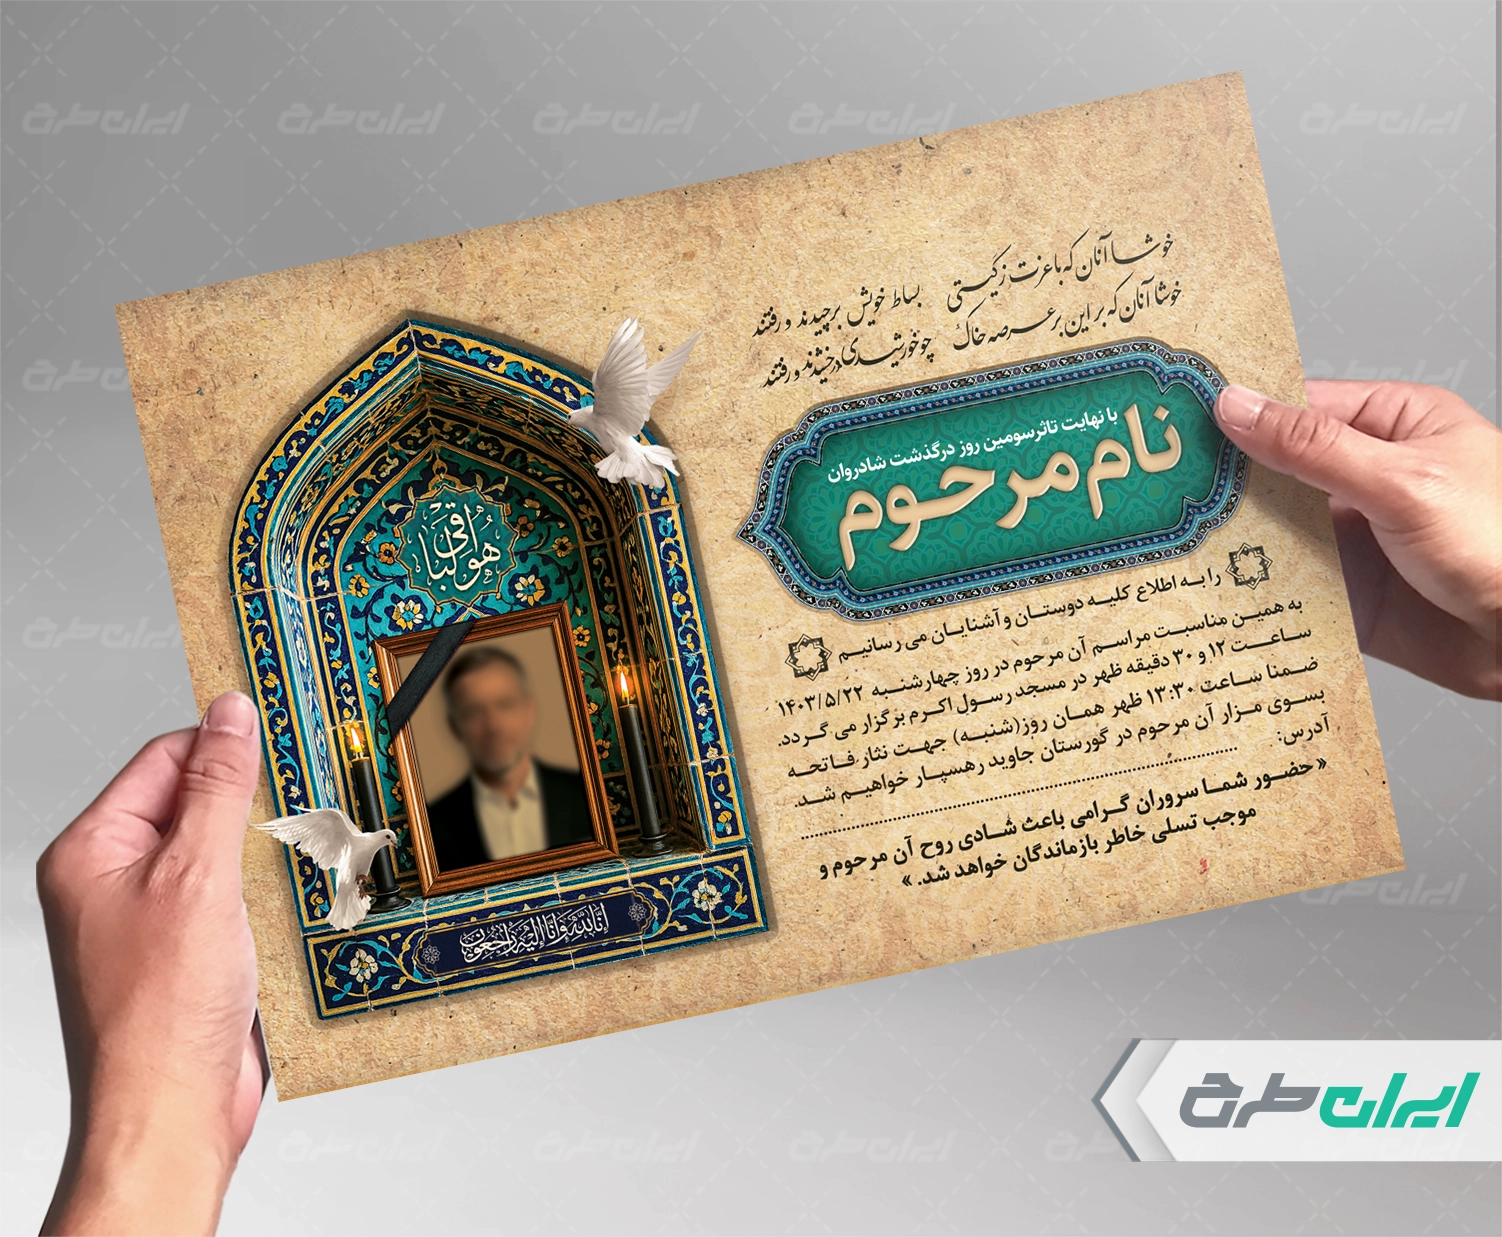 خوشا آنان که با عزت ز گیتی بساط خویش برچیدند و رفتند
خوشا آنان که بر این عرصه خاک چو خورشیدی درخشیدند و رفتند
با نهایت تاثر سومین روز درگذشت شادروان
نام مرحوم
را به اطلاع کلیه دوستان و آشنایان می رسانیم
به همین مناسبت مراسم آن مرحوم در روز چهارشنبه ۱۴۰۳/۵/۲۲
ساعت ۱۲ و ۳۰ دقیقه ظهر در مسجد رسول اکرم برگزار می گردد.
ضمنا ساعت ۱۳:۳۰ ظهر همان روز(شنبه) جهت نثار فاتحه
بسوی مزار آن مرحوم در گورستان جاوید رهسپار خواهیم شد.
آدرس:
«حضور شما سروران گرامی باعث شادی روح آن مرحوم و
موجب تسلی خاطر بازماندگان خواهد شد.»
هو الباقی
إنا لله وإنا إليه راجعون
ایران طرح